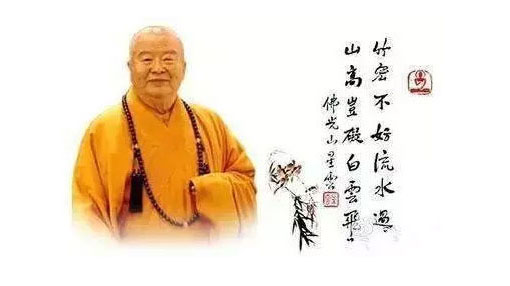 竹密不妨流水過
山高豈礙白雲飛
佛光山星雲